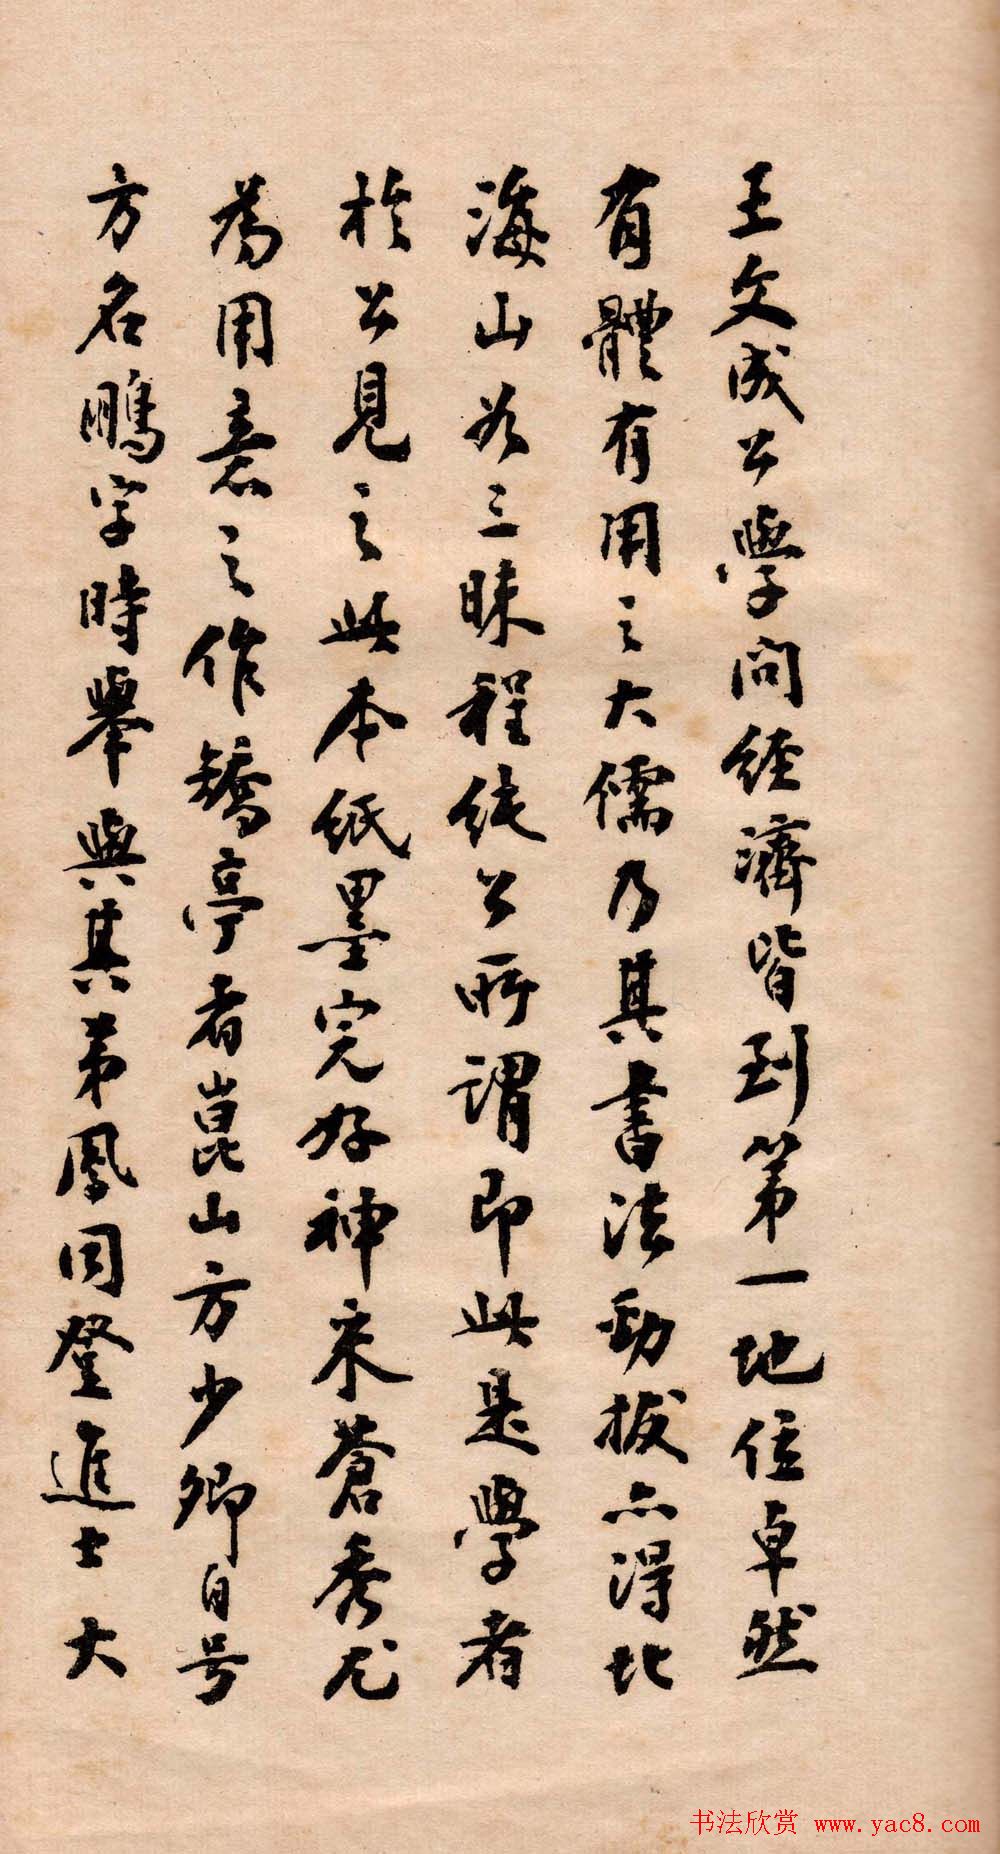 王文成公學問經濟皆到第一地位卓然
有體有用之大儒乃其書法勁拔亦得北
海山谷三昧程純公所謂即此是學者
於公見之此本紙墨完好神采蒼秀尤
為用意之作矯亭者崑山方少卿自号
方名鵬字時舉與其弟鳳同登進士大
书法欣赏 www.yac8.com